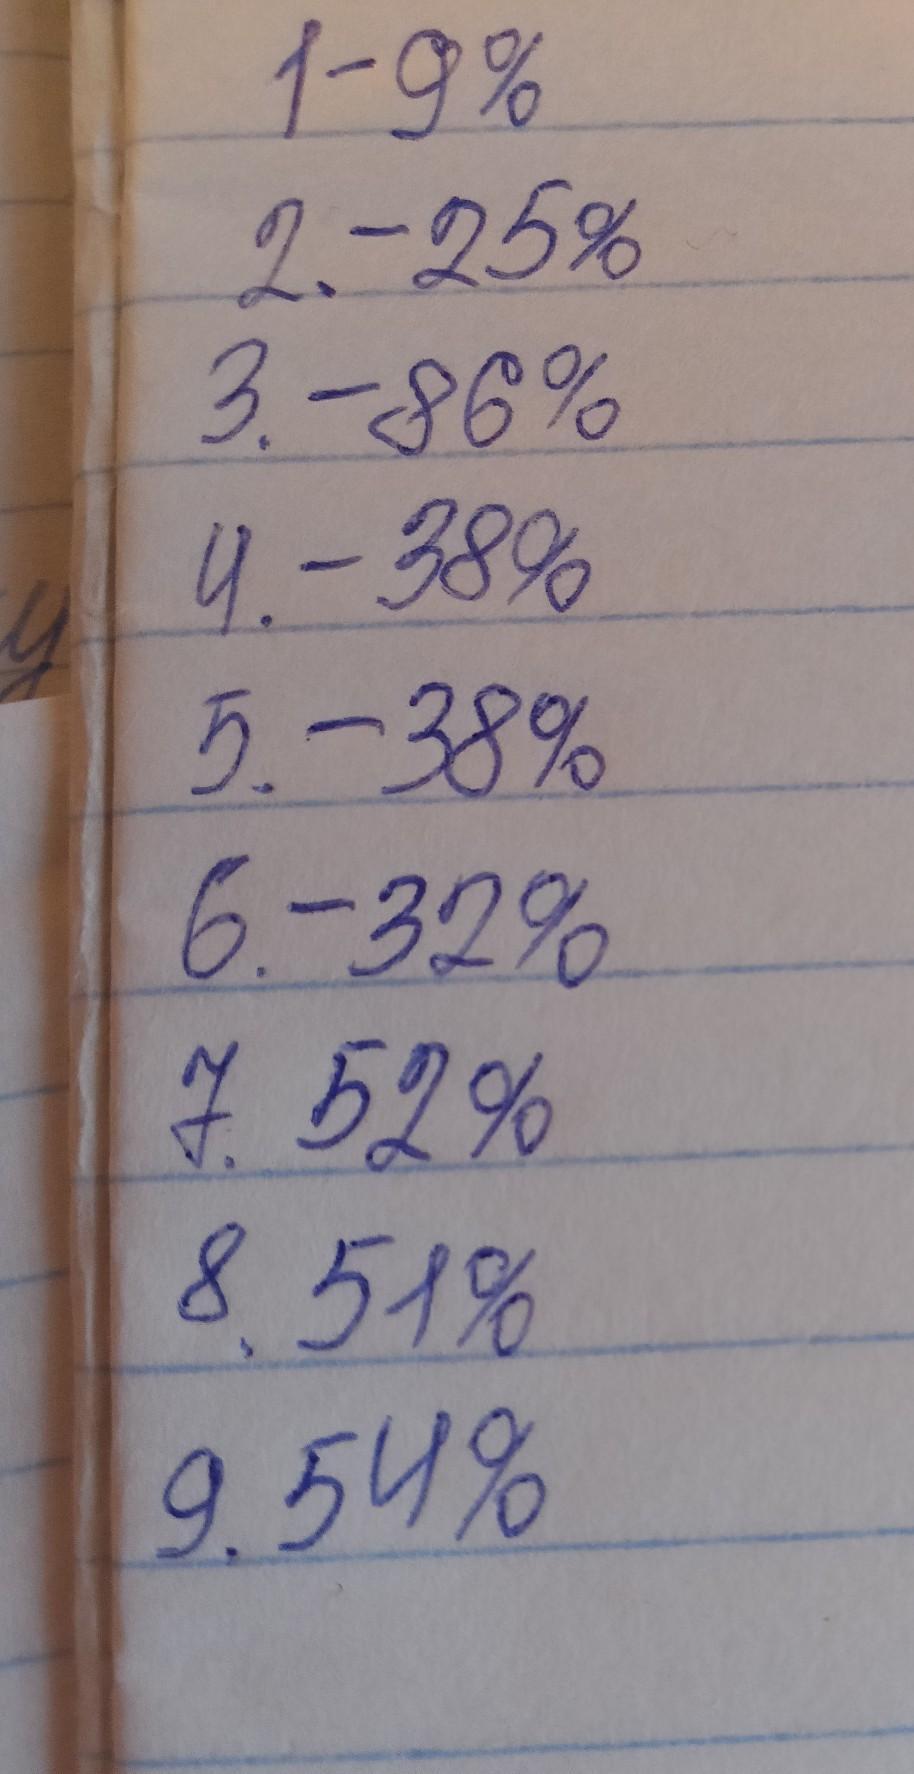 1-9%
2.-25%
3.-86%
4.-38%
5.-38%
6.-32%
7. 52%
8. 51%
9. 54%
у